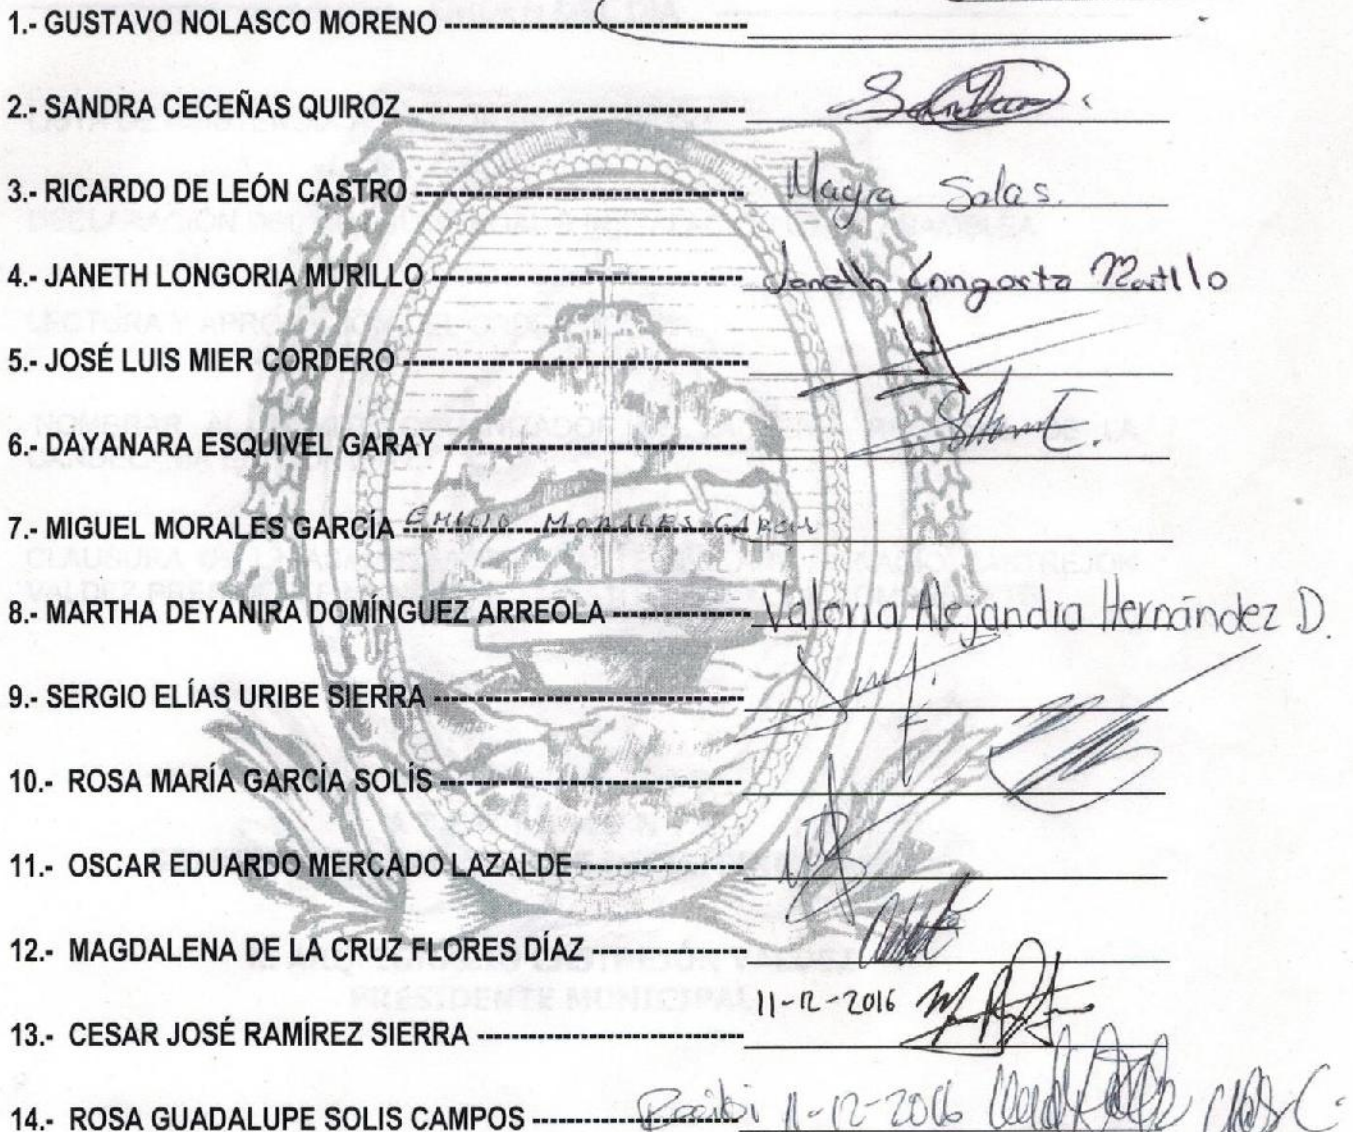 1.- GUSTAVO NOLASCO MORENO ------------------------------
2.- SANDRA CECEÑAS QUIROZ ---------------------------------
3.- RICARDO DE LEÓN CASTRO -------------------------------- Mayra Salas.
4.- JANETH LONGORIA MURILLO ------------------------------ Janeth Longoria Murillo
5.- JOSÉ LUIS MIER CORDERO ---------------------------------
6.- DAYANARA ESQUIVEL GARAY -----------------------------
7.- MIGUEL MORALES GARCÍA EMILIO MORALES GARCIA
8.- MARTHA DEYANIRA DOMÍNGUEZ ARREOLA ------------- Valeria Alejandra Hernández D.
9.- SERGIO ELÍAS URIBE SIERRA ------------------------------
10.- ROSA MARÍA GARCÍA SOLÍS -----------------------------
11.- OSCAR EDUARDO MERCADO LAZALDE ----------------
12.- MAGDALENA DE LA CRUZ FLORES DÍAZ ---------------
PRESIDENTE MUNICIPAL
13.- CESAR JOSÉ RAMÍREZ SIERRA -------------------------- 11-12-2016
14.- ROSA GUADALUPE SOLIS CAMPOS -------------------- Recibi 11-12-2016